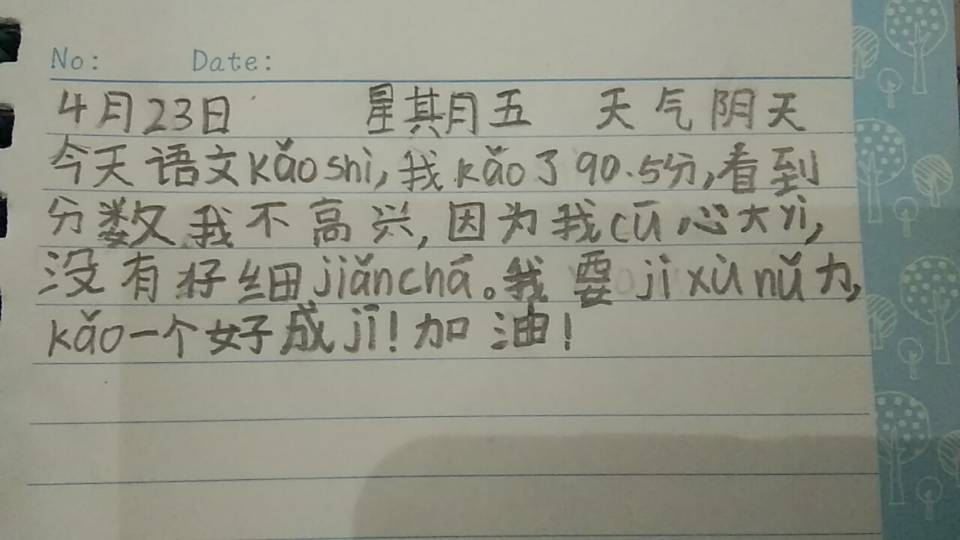 No: Date:
4月23日 星其月五 天气阴天
今天语文kǎoshì,我kǎo了90.5分,看到
分数我不高兴,因为我cū心大yì,
没有仔细jiǎnchá。我要jìxùnǔ力,
kǎo一个好成jī!加油!